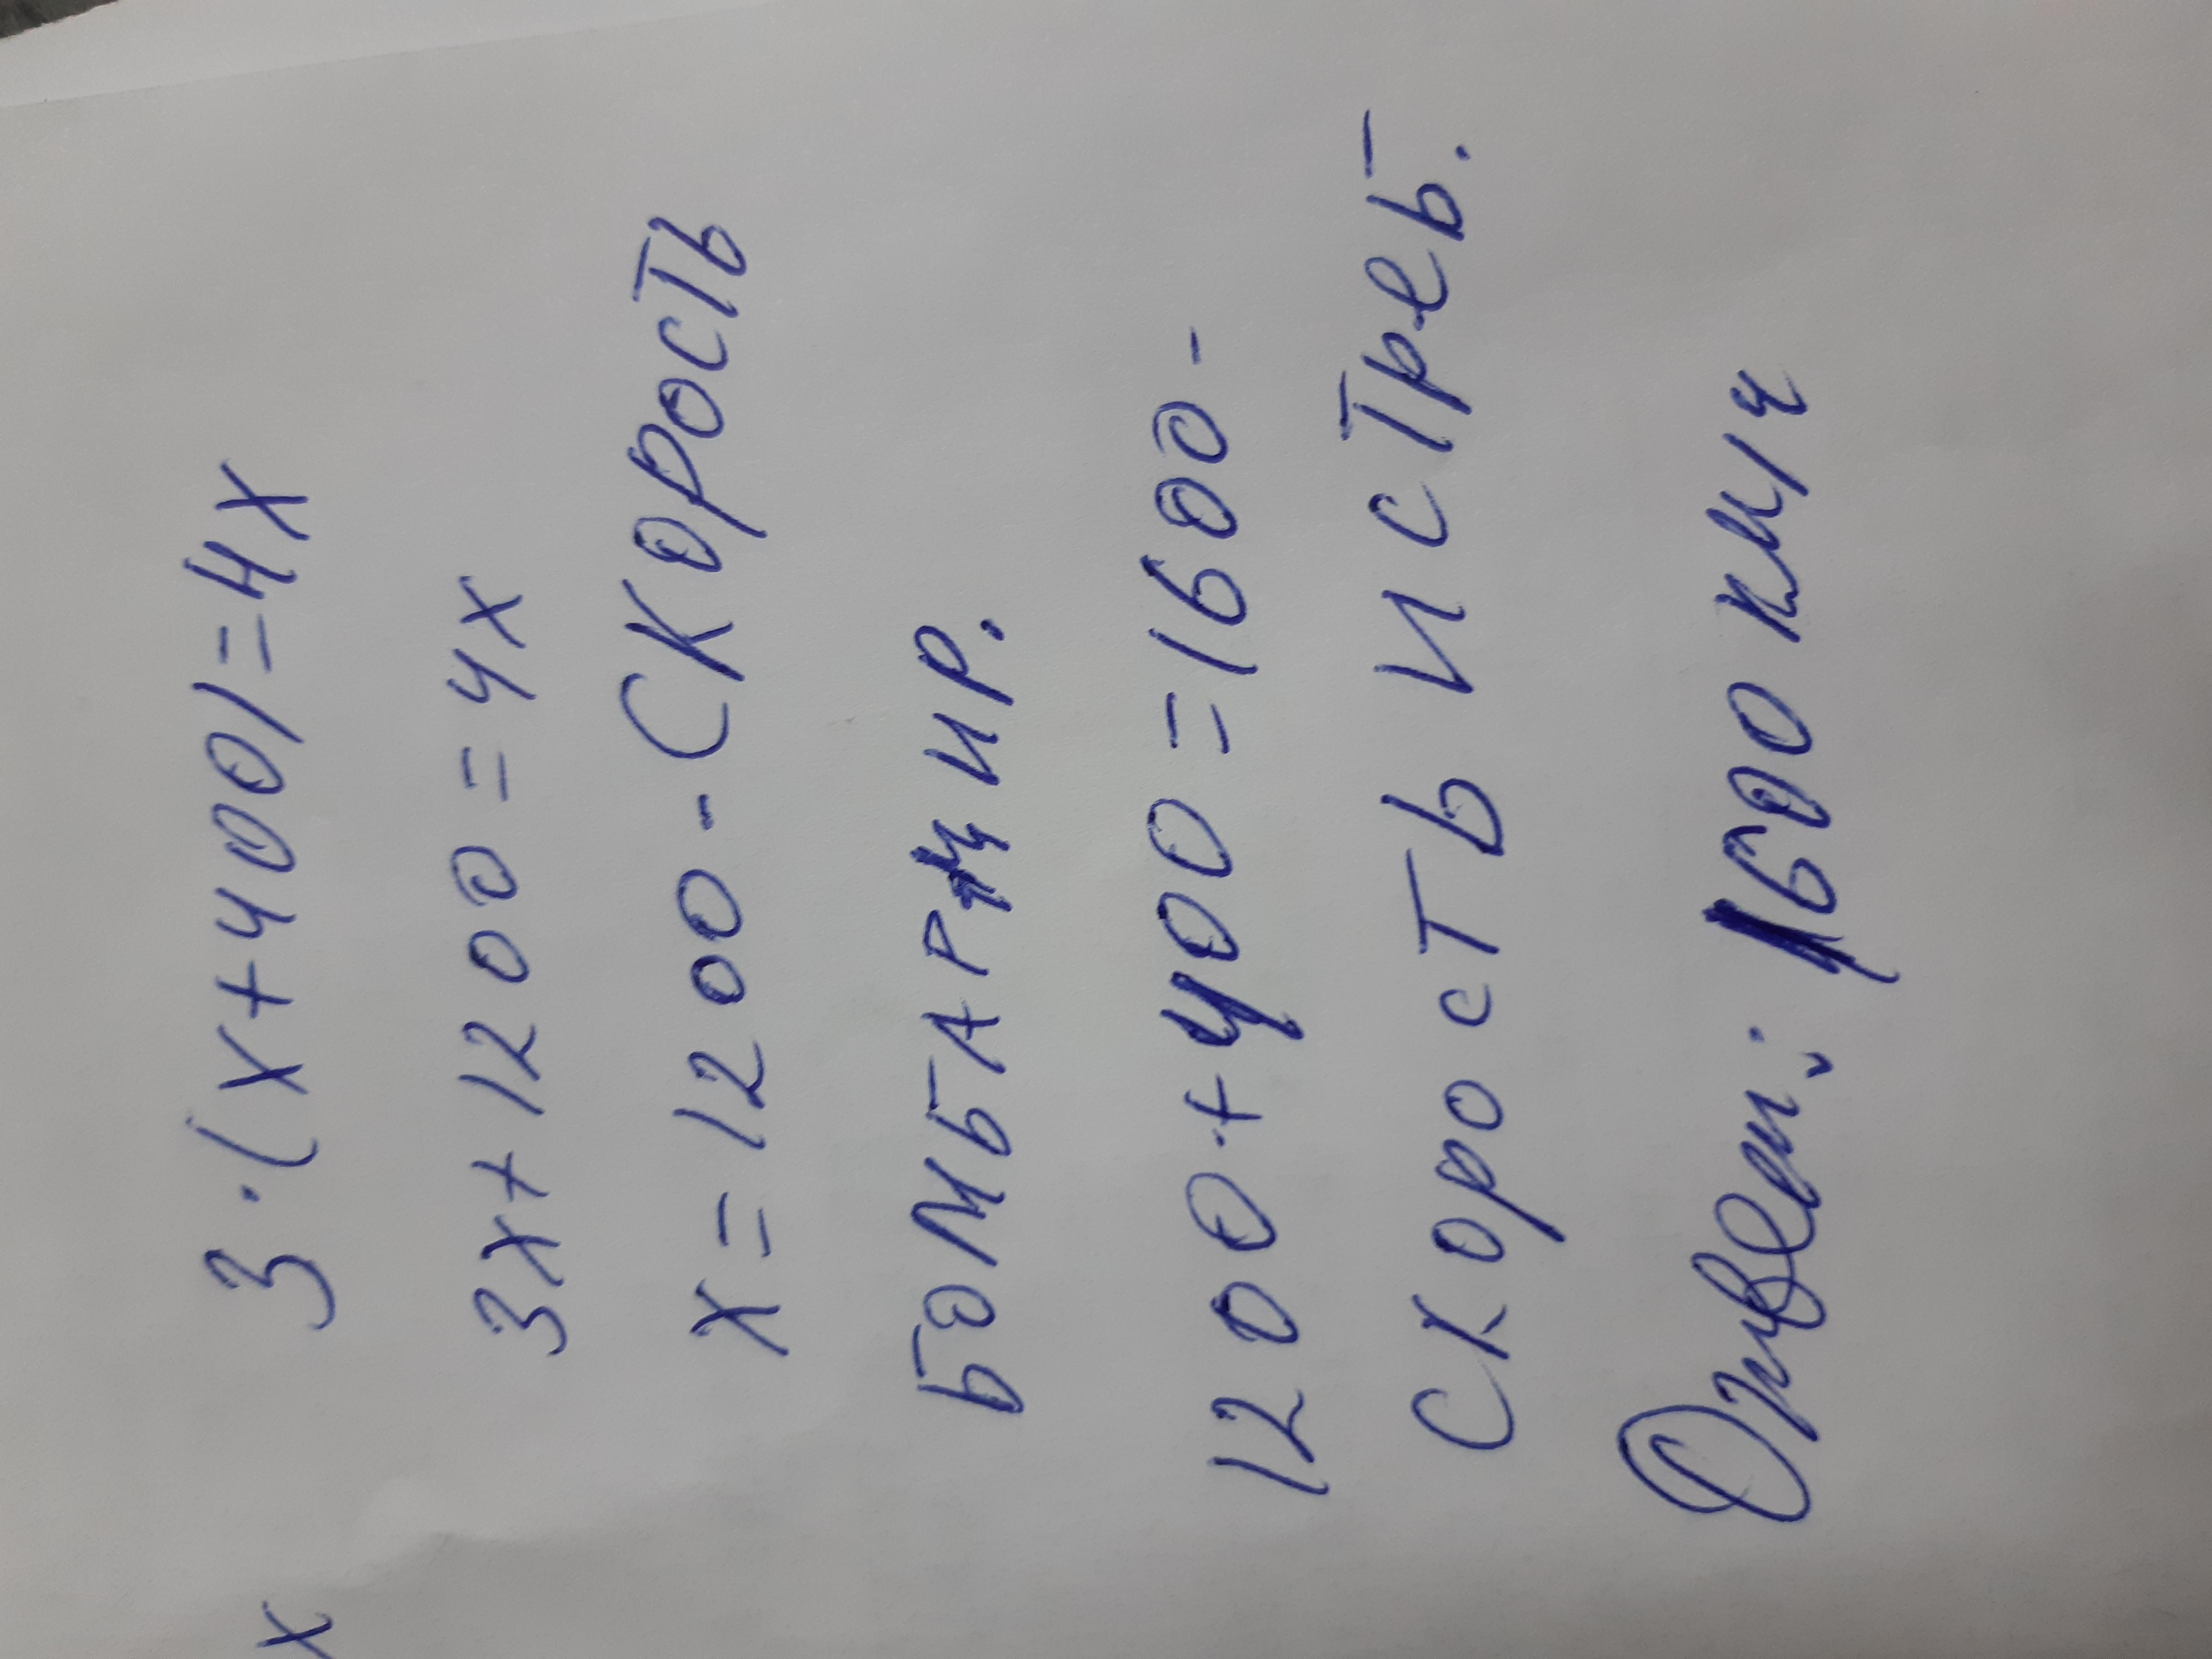 3·(x+400)=4x
3x+1200=4x
x=1200-Скорость
БОМБАРДИР.
1200+400=1600-
Скорость истреб.
x
Ответ: 1600 км/ч